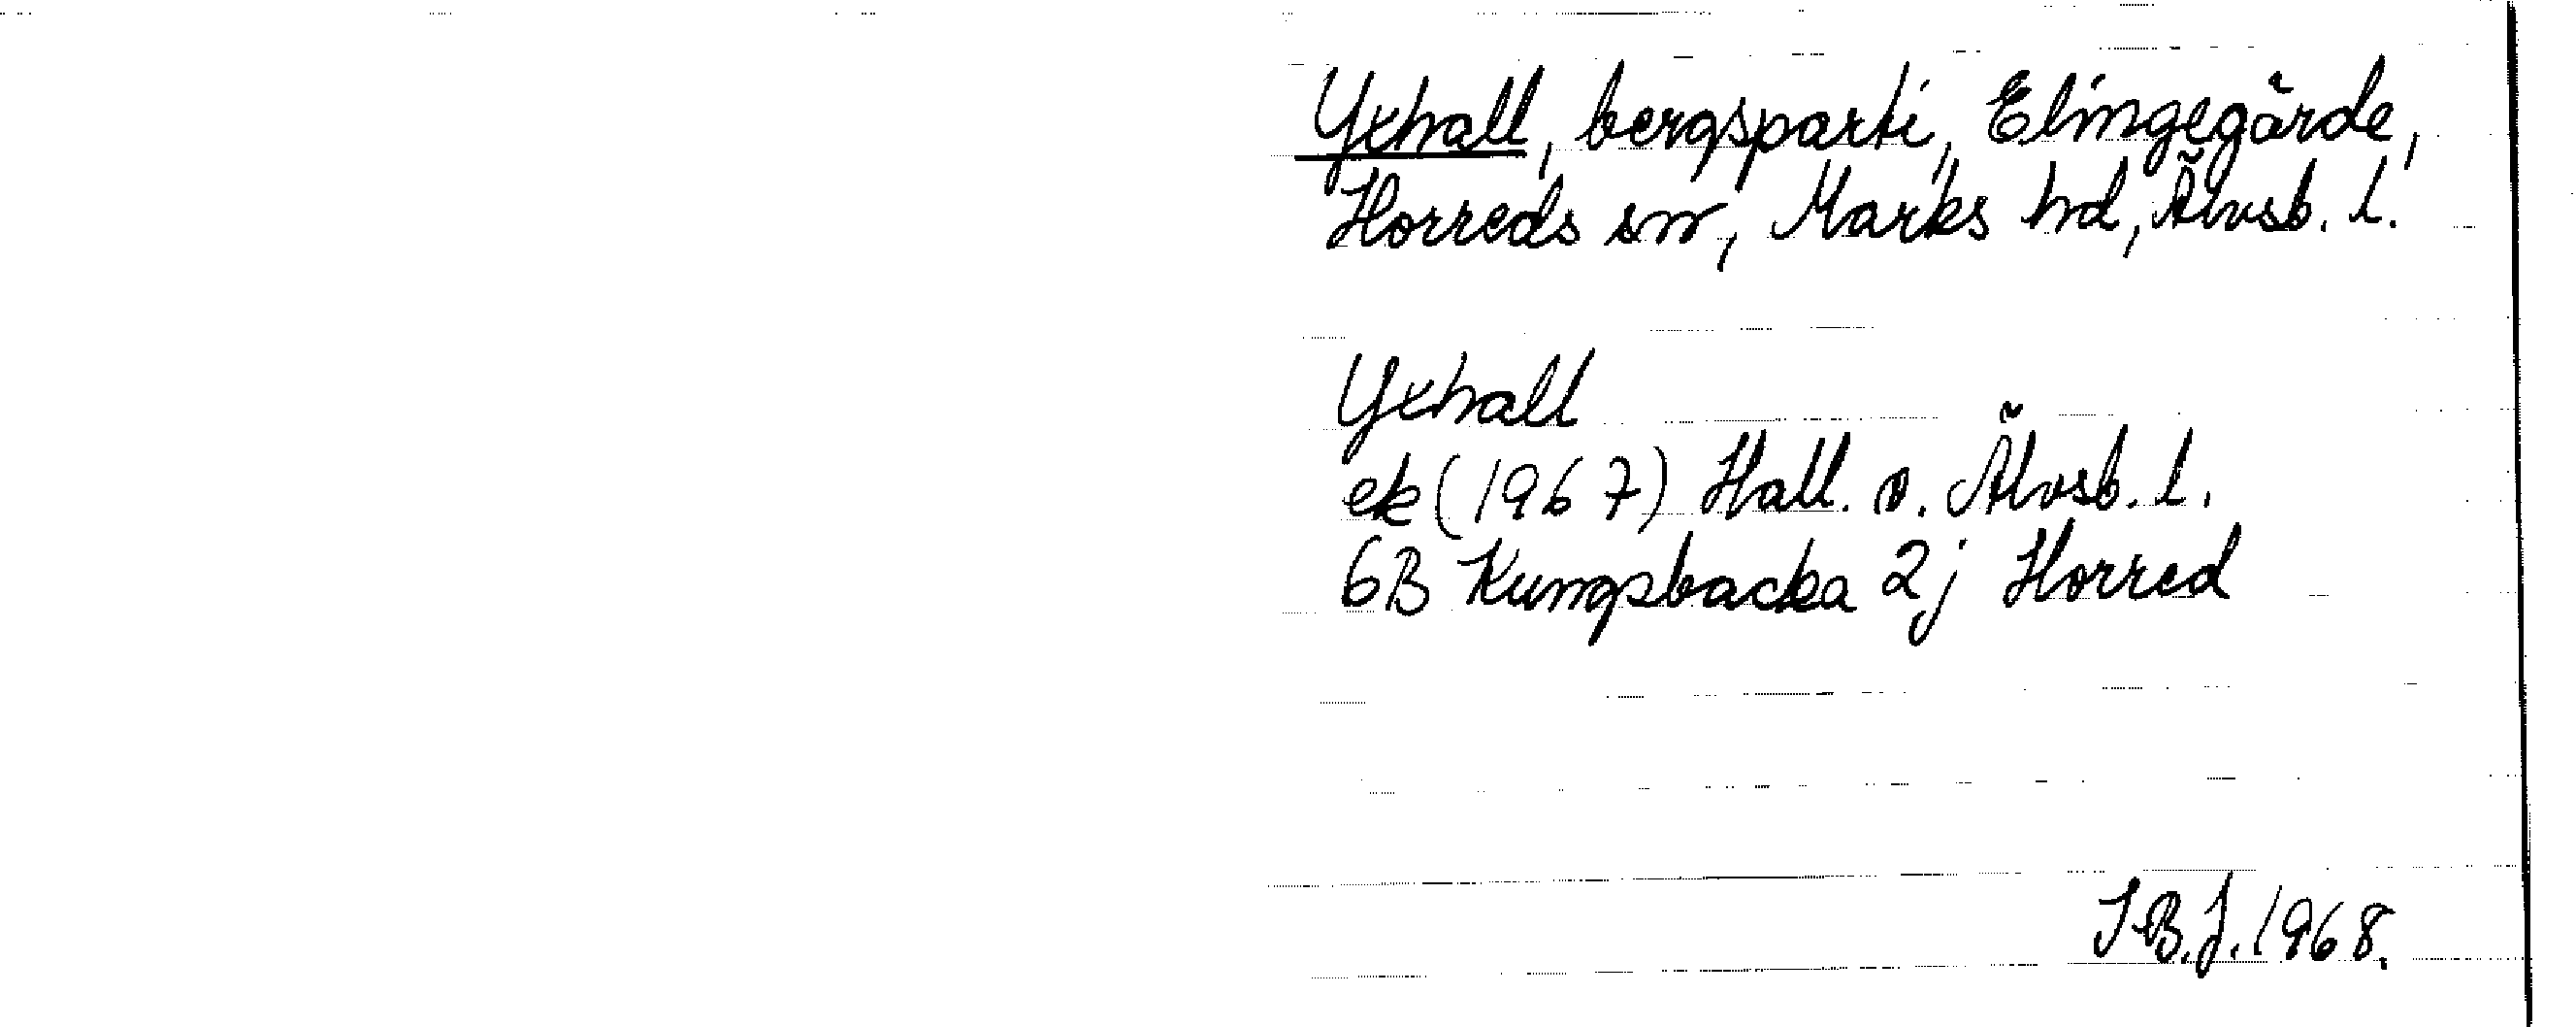 Yxhall, bergsparti, Elingegärde,
Horreds sn, Marks hd, Älvsb. l.
Yxhall
ek (1967) Hall. o. Älvsb. l.
6B Kungsbacka 2j Horred
I.B.J. 1968.